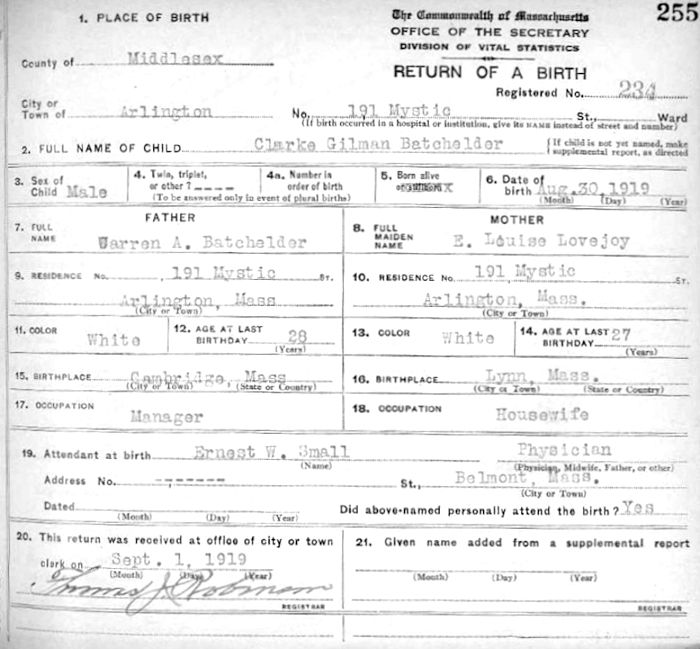 255
1. PLACE OF BIRTH
The Commonwealth of Massachusetts
OFFICE OF THE SECRETARY
DIVISION OF VITAL STATISTICS
County of Middlesex
RETURN OF A BIRTH
Registered No. 234
City or Town of Arlington No. 191 Mystic St., Ward
(If birth occurred in a hospital or institution, give its NAME instead of street and number)
2. FULL NAME OF CHILD Clarke Gilman Batchelder { If child is not yet named, make supplemental report, as directed
3. Sex of Child Male
4. Twin, triplet, or other? ----
4a. Number in order of birth
(To be answered only in event of plural births)
5. Born alive or stillborn X
6. Date of birth Aug. 30, 1919
(Month) (Day) (Year)
FATHER
MOTHER
7. FULL NAME Warren A. Batchelder
8. FULL MAIDEN NAME E. Louise Lovejoy
9. RESIDENCE No. 191 Mystic ST.
Arlington, Mass
(City or Town)
10. RESIDENCE No. 191 Mystic ST.
Arlington, Mass.
(City or Town)
11. COLOR White
12. AGE AT LAST BIRTHDAY 28
(Years)
13. COLOR White
14. AGE AT LAST BIRTHDAY 27
(Years)
15. BIRTHPLACE Cambridge, Mass
(City or Town) (State or Country)
16. BIRTHPLACE Lynn, Mass.
(City or Town) (State or Country)
17. OCCUPATION
Manager
18. OCCUPATION
Housewife
19. Attendant at birth Ernest W. Small Physician
(Name) (Physician, Midwife, Father, or other)
Address No. ------- St., Belmont, Mass.
(City or Town)
Dated
(Month) (Day) (Year)
Did above-named personally attend the birth? Yes
20. This return was received at office of city or town
clerk on Sept. 1, 1919
(Month) (Day) (Year)
Thomas J. Robinson
REGISTRAR
21. Given name added from a supplemental report
(Month) (Day) (Year)
REGISTRAR